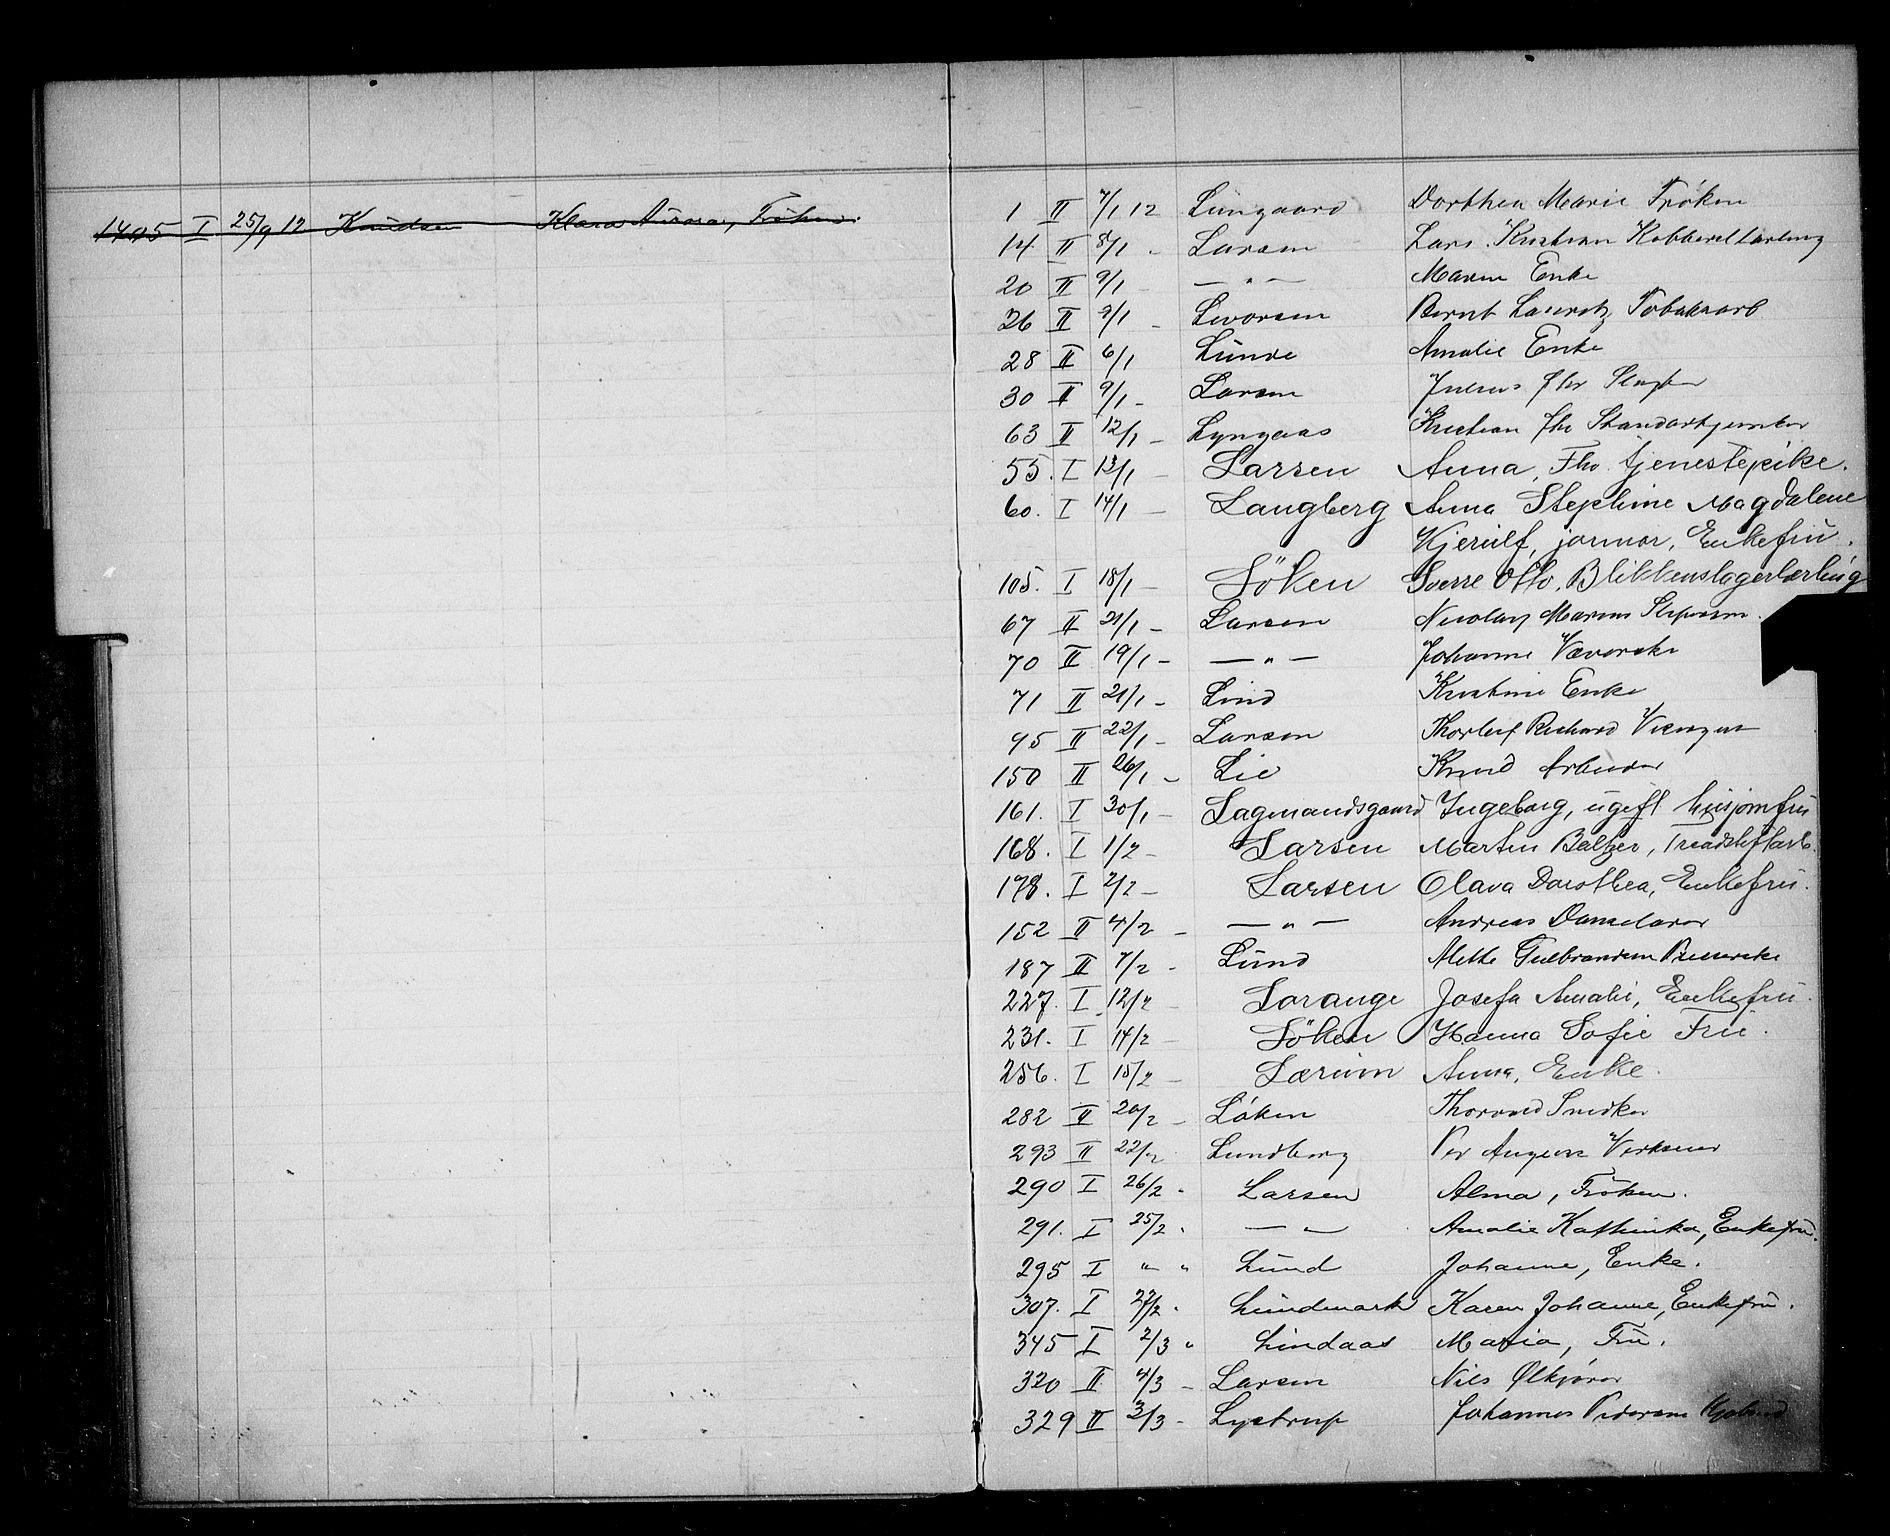 1405 I 25/9 12 Knudsen Klara Aurora, Frøken.
1 II 7/1 12 Lungaard Dorthea Marie Frøken
14 II 8/1 - Larsen Lars Kristian
20 II 9/1 - — " — Maren Enke
26 II 9/1 - Levorsen Bernt Lauritz Tobaksarb
28 II 6/1 Lunde Amalie Enke
30 II 9/1 - Larsen Julius fhv
63 II 12/1 - Lyngaas Kristian fhv
55. I 13/1 - Larsen Anna, Fhv. tjenestepike.
60. I 14/1 - Langberg Anna Stephine Magdalene
Kjerulf, jormor, Enkefru.
105. I 18/1 - Löken Sverre Otto, Blikkenslagerlærling
67 II 21/1 - Larsen Nicolay Marius
70 II 19/1 - — " — Johanne Væverske
71 II 21/1 - Lind Kristine Enke
95 II 22/1 - Larsen Thorleif Richard Visergut
150 II 26/1 - Lie Knud Arbeider
161. I 30/1 - Lagmandsgaard Ingeborg, ugift husjomfru
168. I 1/2 - Larsen Martin Baltzer,
178. I 2/2 - Larsen Olava Dorothea, Enkefru.
152 II 4/2 - — " — Andreas
187 II 7/2 - Lund Mette Gulbrandsen
227. I 12/2 - Lorange Josefa Amalie, Enkefru.
231. I 14/2 - Löken Hanna Sofie Frue.
256. I 15/2 - Lærum Anna, Enke.
282 II 20/2 - Løken Thorvald Snedker
293 II 22/2 Lundberg Per August
290 I 26/2 - Larsen Alma, Frøken.
291. I 25/2 " — " Amalie Kathinka, Enkefru.
295 I " " Lund Johanne, Enke.
307. I 27/2 - Lundmark Karen Johanne, Enkefru.
345 I 2/3 " Lindaas Maria, Fru.
320 II 4/3 - Larsen Nils Ølkjører
329 II 3/3 - Lystrup Johannes Pedersen